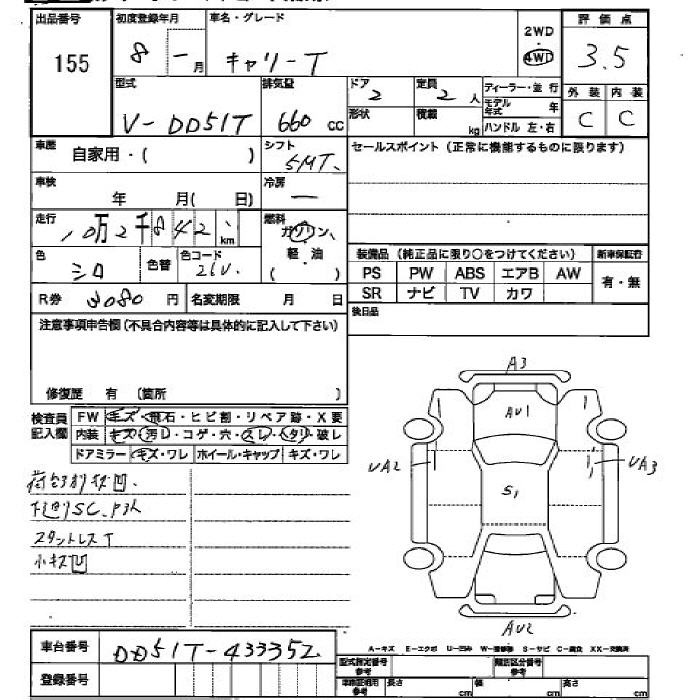 出品番号 155
初度登録年月 8 - 月
車名・グレード キャリーT
2WD
4WD
評価点 3.5
型式 V-DD51T
排気量 660 cc
ドア 2
定員 2 人
ディーラー・並 行
モデル年式 年
ハンドル 左・右
形状
積載 kg
外装 内装
C C
車歴 自家用・( )
シフト 5MT
セールスポイント (正常に機能するものに限ります)
車検 年 月( 日)
冷房 ー
走行 10万2千842 km
燃料 ガソリン
軽・油
( )
色 シロ 色替 色コード 26U
装備品 (純正品に限り○をつけてください)
新車保証書
PS PW ABS エアB AW
有・無
SR ナビ TV カワ
R券 円 名変期限 月 日
後日品
注意事項申告欄 (不具合内容等は具体的に記入して下さい)
修復歴 有 (箇所 )
検査員記入欄
FW キズ・飛石・ヒビ割・リペア跡・X要
内装 キズ・汚レ・コゲ・穴・スレ・タリ・破レ
ドアミラー キズ・ワレ ホイール・キャップ キズ・ワレ
下廻りSC.
スタットレスT
小キズ凹
A3
AU1
UA2
UA3
S1
AU2
車台番号 DD51T-433352
登録番号
A-キズ E-エクボ U-凹み W-補修跡 S-サビ C-腐食 XX-交換済
型式指定番号 参考
類別区分番号 参考
車庫証明用 参考 長さ cm 幅 cm 高さ cm